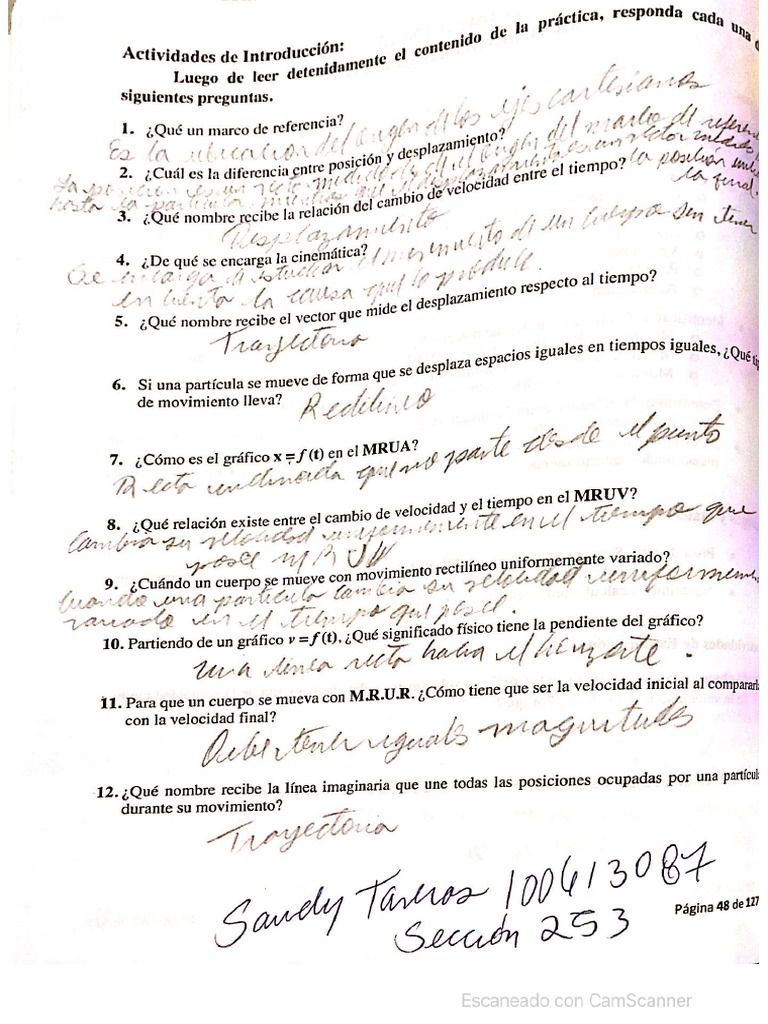 Actividades de Introducción:
Luego de leer detenidamente el contenido de la práctica, responda cada una
siguientes preguntas.
1. ¿Qué un marco de referencia?
Es la ubicación del origen de los ejes cartesianos
2. ¿Cuál es la diferencia entre posición y desplazamiento?
La posición es un vector medido desde el origen del marco de
hasta la partícula mientras que el desplazamiento es un vector medido
la posición
la final.
3. ¿Qué nombre recibe la relación del cambio de velocidad entre el tiempo?
Desplazamiento
4. ¿De qué se encarga la cinemática?
Se encarga de estudiar el movimiento de un cuerpo sin tener
en cuenta la causa que lo produce.
5. ¿Qué nombre recibe el vector que mide el desplazamiento respecto al tiempo?
Trayectoria
6. Si una partícula se mueve de forma que se desplaza espacios iguales en tiempos iguales, ¿Qué
de movimiento lleva?
Rectilineo
7. ¿Cómo es el gráfico x = f (t) en el MRUA?
Recta inclinada que no parte desde el punto
8. ¿Qué relación existe entre el cambio de velocidad y el tiempo en el MRUV?
Cambia su velocidad uniformemente en el tiempo que
posee MRUV
9. ¿Cuándo un cuerpo se mueve con movimiento rectilíneo uniformemente variado?
Cuando una partícula cambia su velocidad
variado en el tiempo que posee.
10. Partiendo de un gráfico v = f (t), ¿Qué significado físico tiene la pendiente del gráfico?
una línea recta hacia el
11. Para que un cuerpo se mueva con M.R.U.R. ¿Cómo tiene que ser la velocidad inicial al
con la velocidad final?
Debe tener iguales magnitudes
12. ¿Qué nombre recibe la línea imaginaria que une todas las posiciones ocupadas por una
durante su movimiento?
Trayectoria
Sandy Taveras 100613087
Sección 253
Página 48 de 127
Escaneado con CamScanner